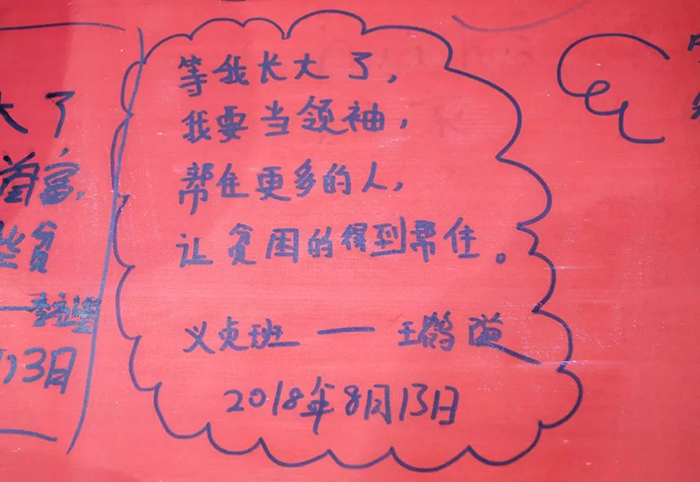 等我长大了，
我要当领袖，
帮住更多的人，
让贫困的得到帮住。
义贞班 — 王鹤
2018年8月13日
大了
首富，
些贫
13日